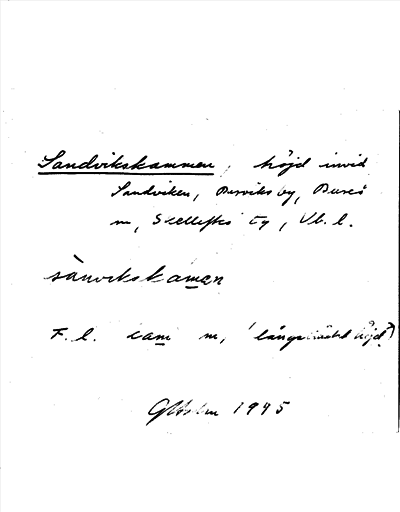 Sandvikskammen, höjd invid
Sandviken, Burviks by, Bureå
m, Skellefteå tg, Vb. l.
sànvikskamen
F. l. kam m, 'långsträckt höjd')
GHolm 1945